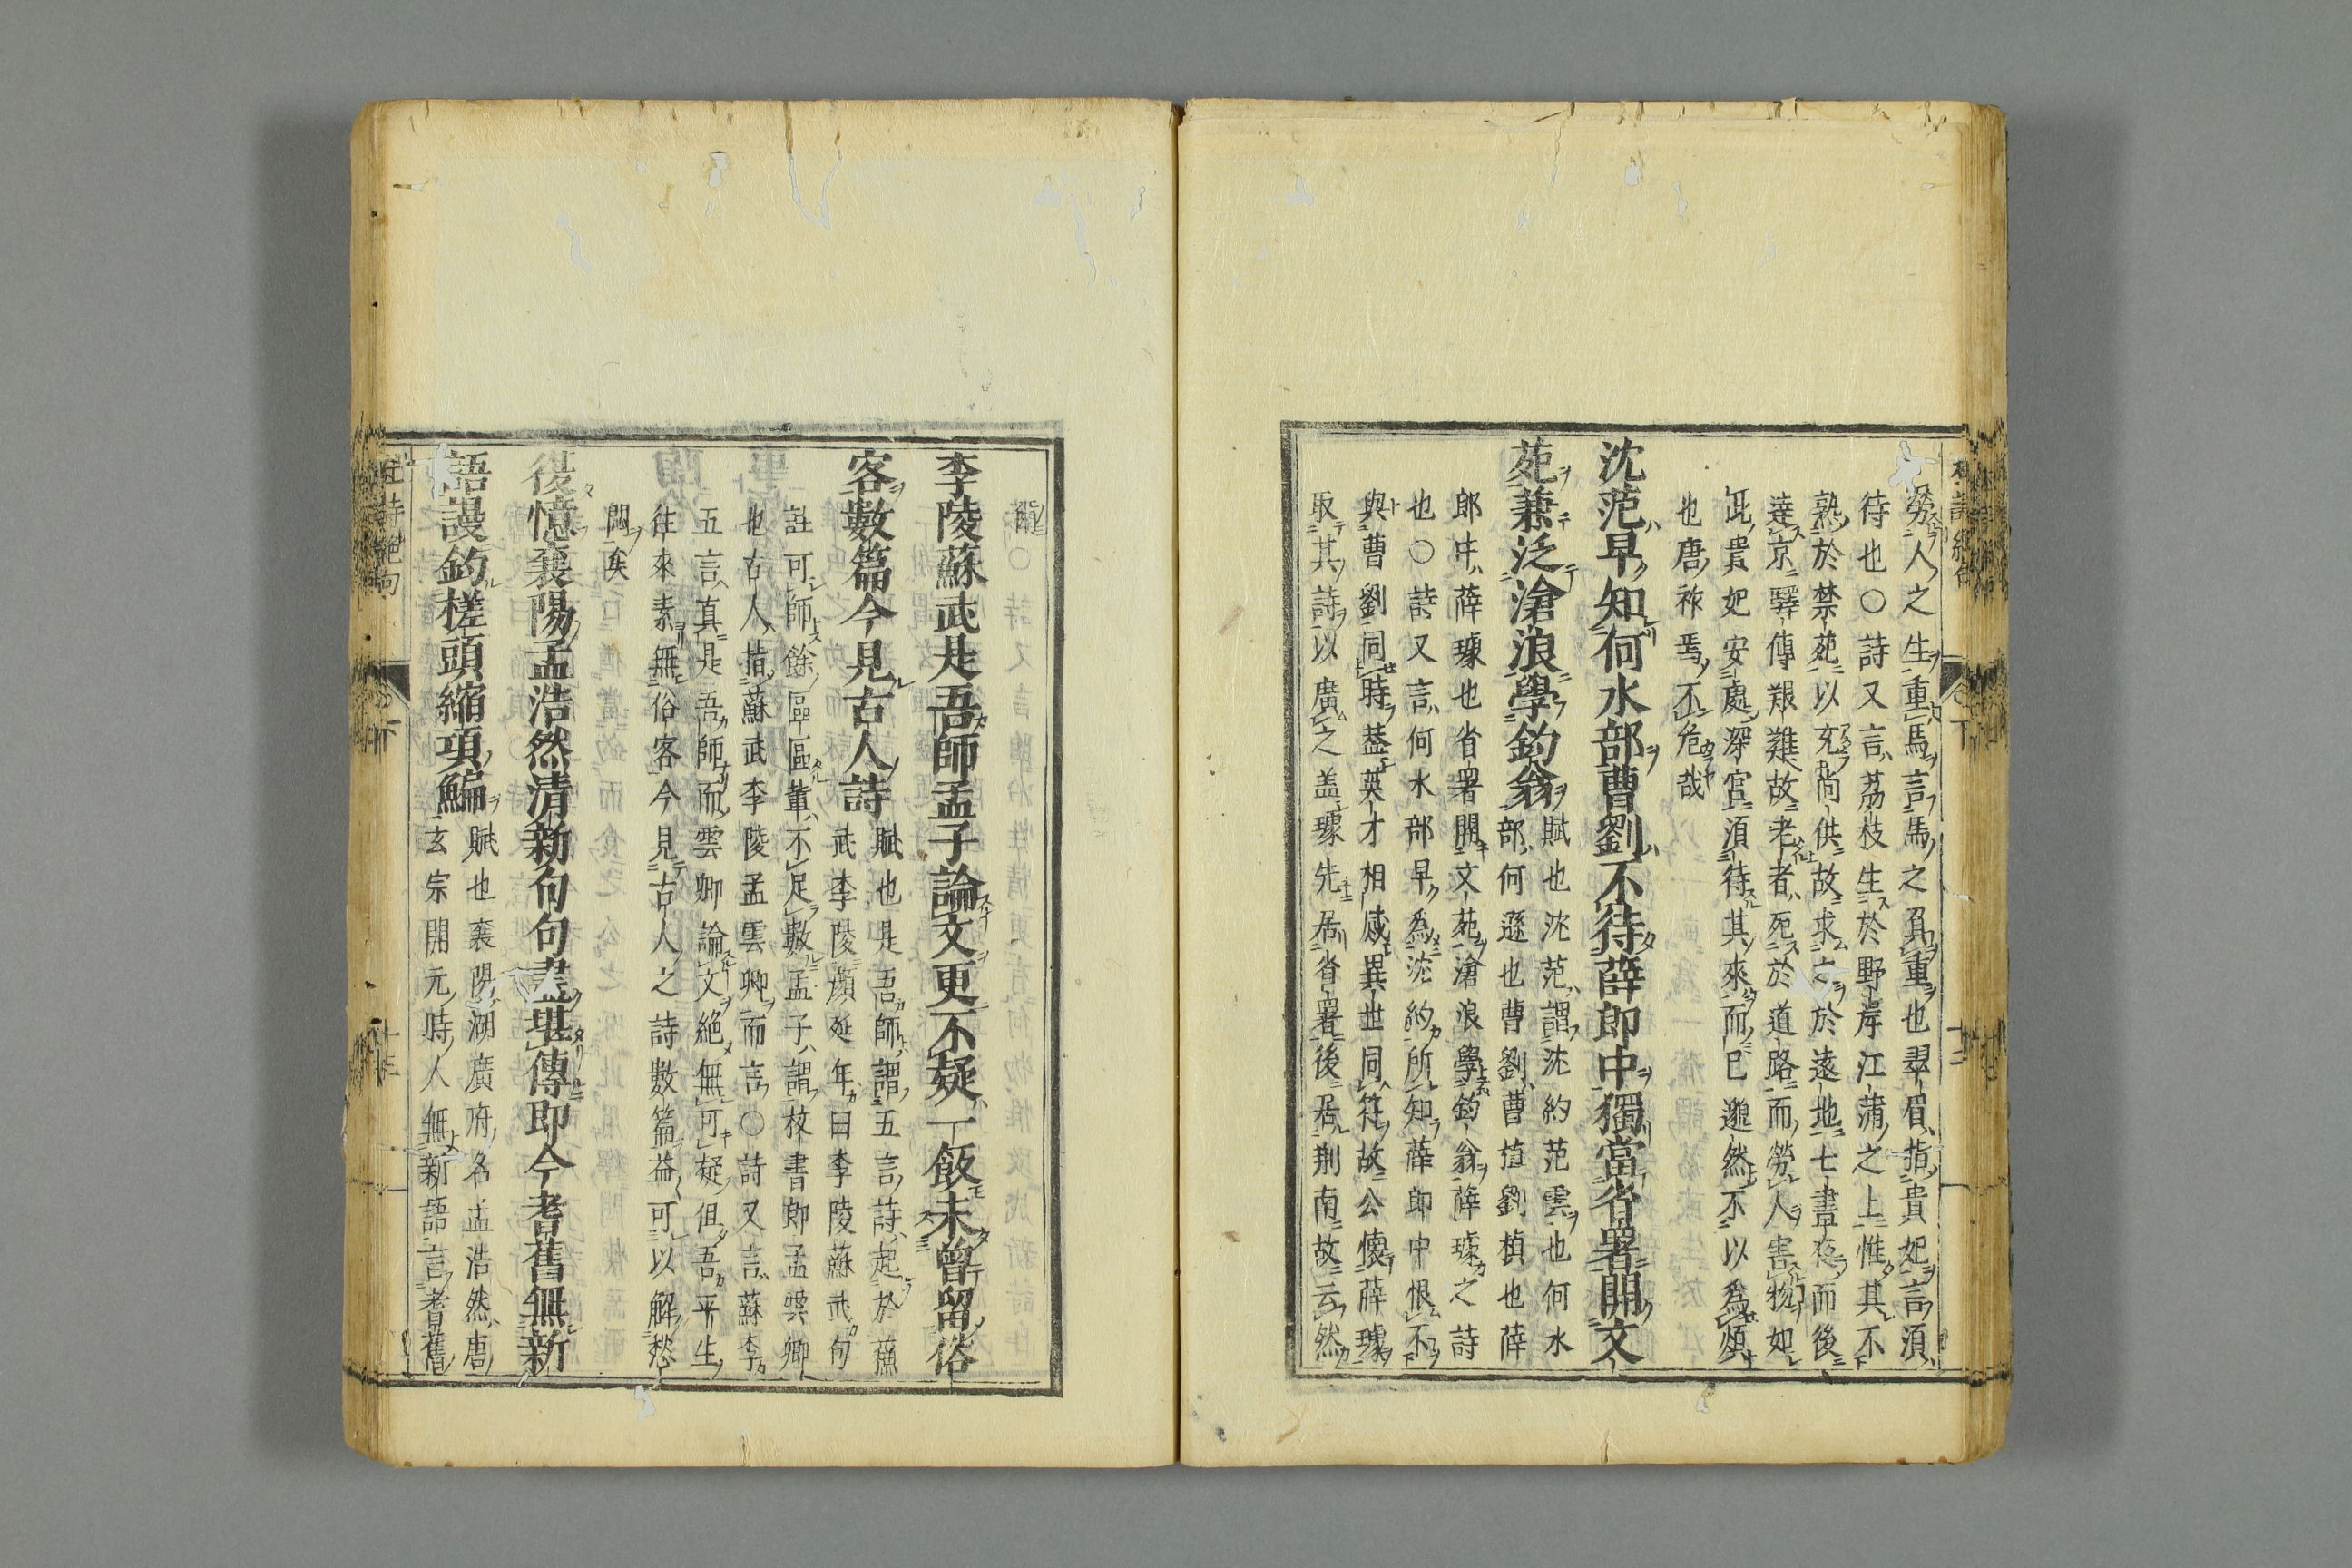 勞人之生重馬言馬之負重也翠眉指貴妃言湏
待也〇詩又言荔枝生於野岸江蒲之上惟其不
熟於禁苑以充尚供故求之於遠地七晝夜而後
達京驛傳艱難故老者死於道路而勞人害物如
此貴妃安處深宮湏待其來而已邈然不以為煩
也唐祚焉不危哉
沈范早知何水部曹劉不待薛郎中獨當省署開文
苑兼泛滄浪學釣翁
賦也沈范謂沈約范雲也何水
部何遜也曹劉曹植劉楨也薛
郎中薛璩也省署開文苑滄浪學釣翁薛璩之詩
也〇詩又言何水部早為沈約所知薛郎中恨不
與曹劉同時葢英才相感異世同符故公懷薛璩
取其詩以廣之盖璩先居省署後居荆南故云然
爾
李陵蘇武是吾師孟子論文更不疑一飯未曾留俗
客數篇今見古人詩
賦也是吾師謂五言詩起於蘇
武李陵顔延年曰李陵蘇武句
註可師餘區區輩不足數孟子謂校書郎孟雲卿
也古人指蘇武李陵孟雲卿而言〇詩又言蘇李
五言真是吾師而雲卿論文絶無可疑但吾平生
往來素無俗客今見古人之詩數篇益可以解愁
悶矣
復憶襄陽孟浩然清新句句盡堪傳即今耆舊無新
語謾釣槎頭縮項鯿
賦也襄陽湖廣府名孟浩然唐
玄宗開元時人無新語言耆舊
杜詩絶句
下
十三